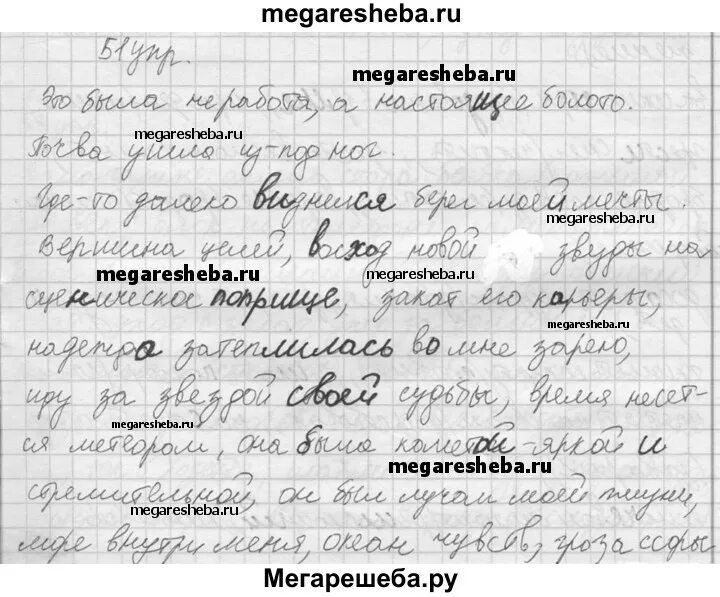 megaresheba.ru
51 упр.
megaresheba.ru
Это была не работа, а настоящее болото.
megaresheba.ru
Почва ушла из-под ног.
Где-то далеко виднелся берег моей мечты.
megaresheba.ru
Вершина целей, восход новой звезды на
megaresheba.ru
megaresheba.ru
сценическое поприще, закат его карьеры,
megaresheba.ru
надежда затеплилась во мне зарею,
иду за звездой своей судьбы, время несет-
ся метеором, она была кометой-яркой и
megaresheba.ru
стремительной, он был лучом моей жизни,
megaresheba.ru
море внутри меня, океан чувств, гроза ссоры
Мегарешеба.ру